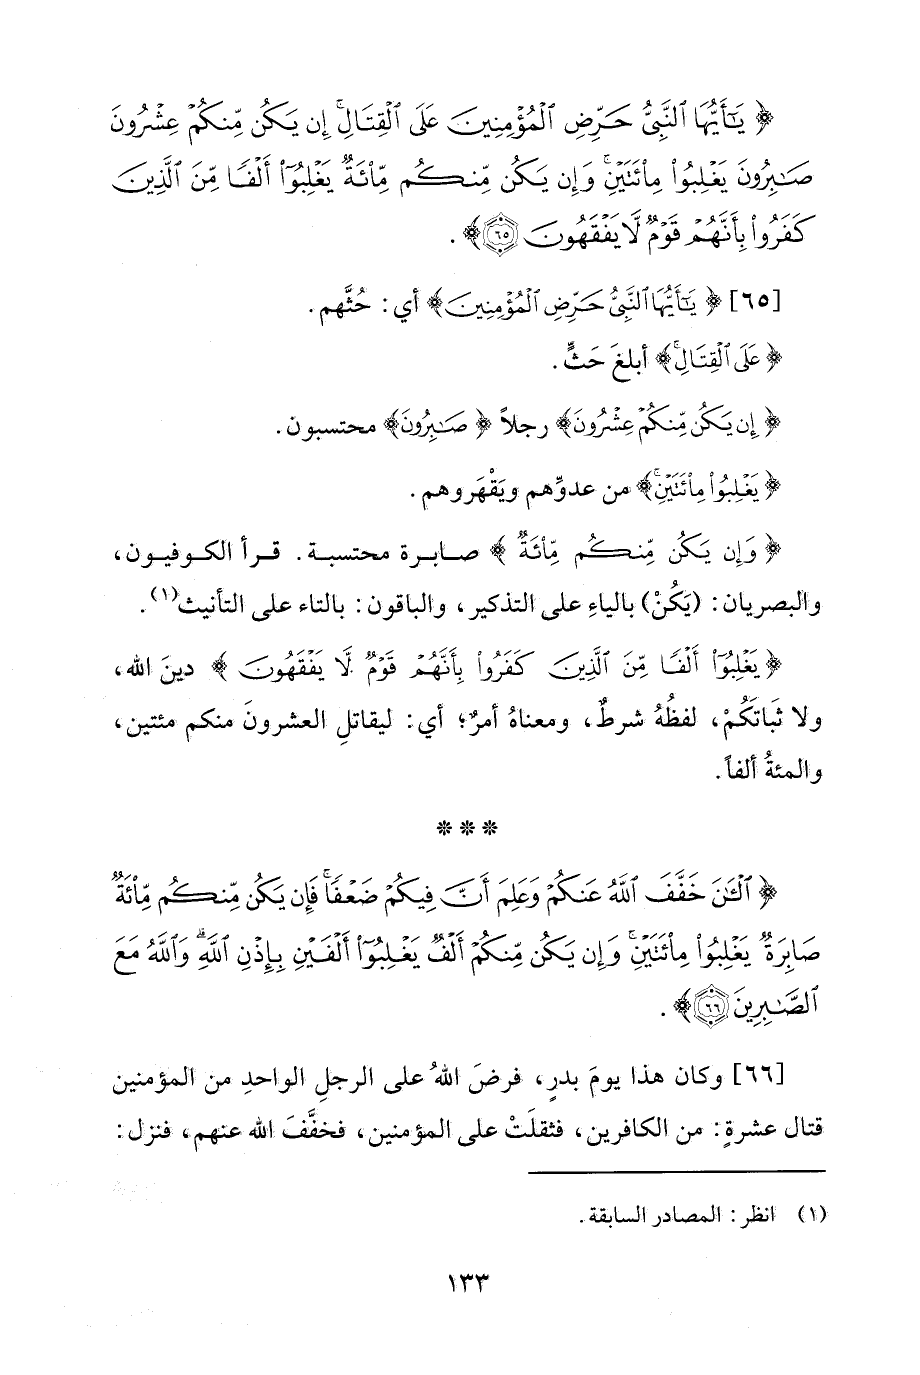 ﴿ يَٰٓأَيُّهَا ٱلنَّبِيُّ حَرِّضِ ٱلْمُؤْمِنِينَ عَلَى ٱلْقِتَالِۚ إِن يَكُن مِّنكُمْ عِشْرُونَ
صَٰبِرُونَ يَغْلِبُوا۟ مِا۟ئَتَيْنِۚ وَإِن يَكُن مِّنكُم مِّا۟ئَةٌ يَغْلِبُوٓا۟ أَلْفًا مِّنَ ٱلَّذِينَ
كَفَرُوا۟ بِأَنَّهُمْ قَوْمٌ لَّا يَفْقَهُونَ ٦٥﴾ .
[٦٥] ﴿ يَٰٓأَيُّهَا ٱلنَّبِيُّ حَرِّضِ ٱلْمُؤْمِنِينَ﴾ أي: حُثَّهم.
﴿ عَلَى ٱلْقِتَالِۚ﴾ أبلغَ حَثٍّ.
﴿ إِن يَكُن مِّنكُمْ عِشْرُونَ﴾ رجلاً ﴿ صَٰبِرُونَ﴾ محتسبون.
﴿ يَغْلِبُوا۟ مِا۟ئَتَيْنِۚ﴾ من عدوِّهم ويَقْهَروهم.
﴿ وَإِن يَكُن مِّنكُم مِّا۟ئَةٌ ﴾ صابرة محتسبة. قرأ الكوفيون،
والبصريان: (يَكُنْ) بالياءِ على التذكير، والباقون: بالتاء على التأنيث(١).
﴿ يَغْلِبُوٓا۟ أَلْفًا مِّنَ ٱلَّذِينَ كَفَرُوا۟ بِأَنَّهُمْ قَوْمٌ لَّا يَفْقَهُونَ ﴾ دينَ الله،
ولا ثَباتَكُمْ، لفظُهُ شرطٌ، ومعناهُ أمرٌ؛ أي: ليقاتلِ العشرونَ منكم مئتين،
والمئةُ ألفاً.
* * *
﴿ ٱلْـَٰٔنَ خَفَّفَ ٱللَّهُ عَنكُمْ وَعَلِمَ أَنَّ فِيكُمْ ضَعْفًاۚ فَإِن يَكُن مِّنكُم مِّا۟ئَةٌ
صَابِرَةٌ يَغْلِبُوا۟ مِا۟ئَتَيْنِۚ وَإِن يَكُن مِّنكُمْ أَلْفٌ يَغْلِبُوٓا۟ أَلْفَيْنِ بِإِذْنِ ٱللَّهِۗ وَٱللَّهُ مَعَ
ٱلصَّٰبِرِينَ ٦٦﴾ .
[٦٦] وكان هذا يومَ بدرٍ، فرضَ اللهُ على الرجلِ الواحدِ من المؤمنين
قتال عشرةٍ: من الكافرين، فثقلَتْ على المؤمنين، فخفَّفَ الله عنهم، فنزل:
(١) انظر: المصادر السابقة.
١٣٣